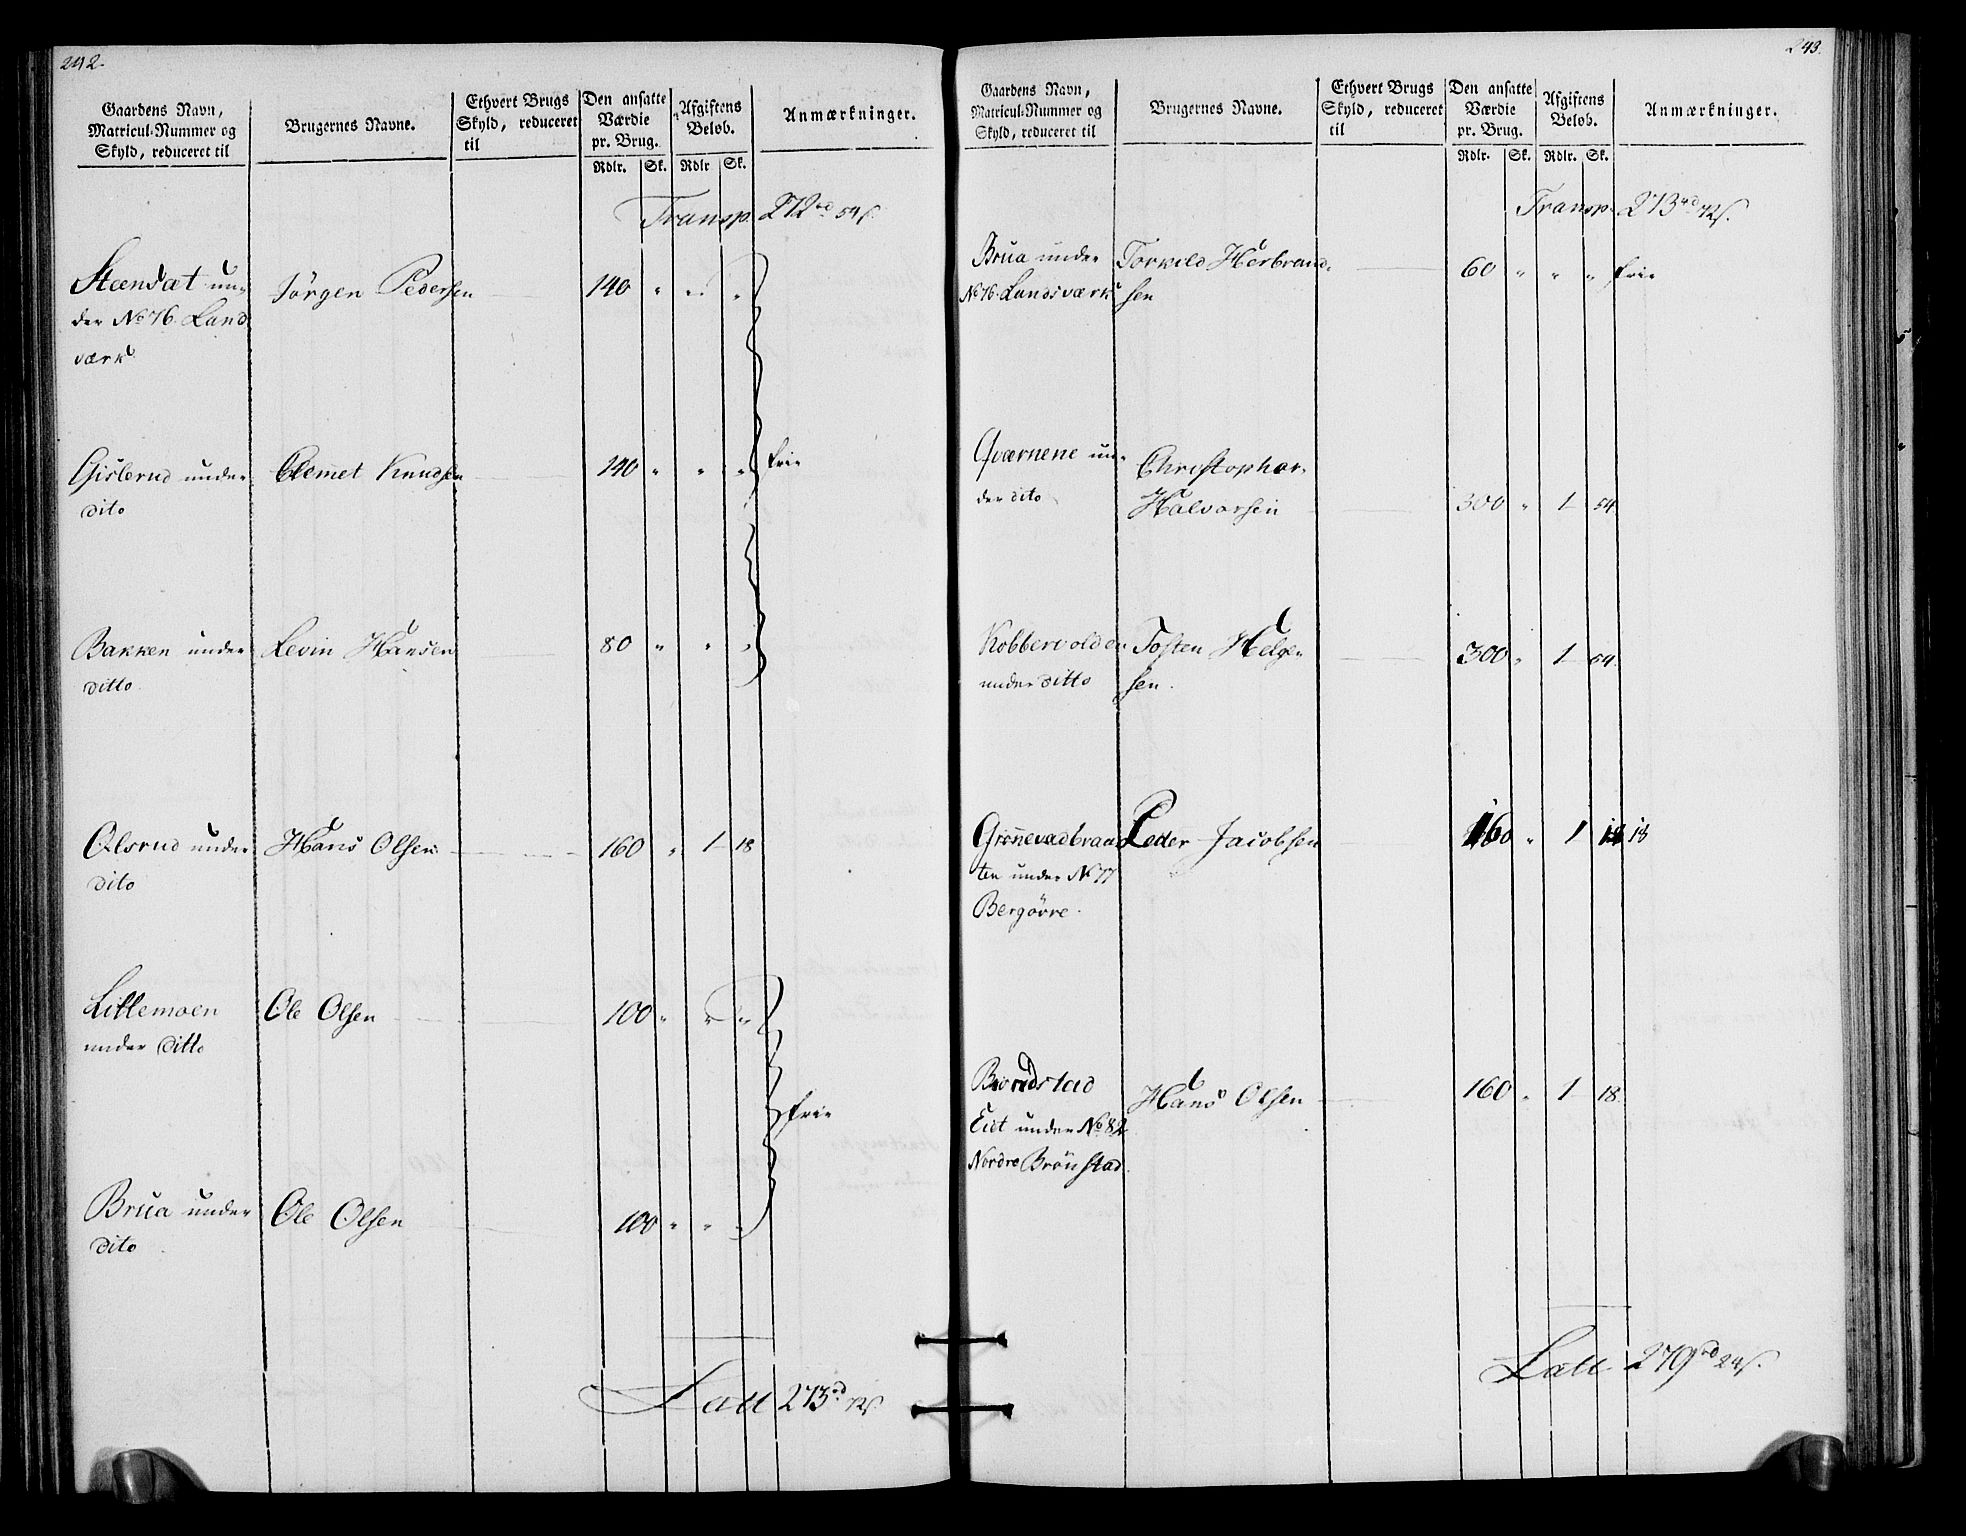 242.
Gaardens Navn, Matricul-Nummer og Skyld, reduceret til
Brugernes Navne.
Ethvert Brugs Skyld, reduceret til
Den ansatte Værdie pr. Brug.
Afgiftens Beløb.
Anmærkninger.
Rdlr. Sk. Rdlr Sk.
Transp. 272 rd 54 s.
Steensæt un-
der No 76. Land
værk
Jörgen Pedersen 140 " " "
Gislerud under
dito
Clemet Knudsen 140 " " " frie
Bakken under
ditto
Levin Hansen 80 " " "
Olsrud under
dito
Hans Olsen 160 " 1 18
Lillemoen
under ditto
Ole Olsen 100 " " "
frie
Brua under
dito
Ole Olsen 100 " " "
Latt 273 rd 72 s
243.
Gaardens Navn, Matricul-Nummer og Skyld, reduceret til
Brugernes Navne.
Ethvert Brugs Skyld, reduceret til
Den ansatte Værdie pr. Brug.
Afgiftens Beløb.
Anmærkninger.
Rdlr. Sk. Rdlr. Sk.
Transp. 273 rd 72 s.
Brua under
No 76. Landsværk
Torkild Herbrand-
sen
60 " " " frie
Qværnene un-
der dito
Christopher
Halvorsen 300 " 1 54
Kobbervolden
under ditto
Tosten Helge-
sen.
300 " 1 54.
Grönnevadbraa-
ten under No 77
Bergövre.
Peder Jacobsen 160 " 1 18 18
Brondstad
Eiet under No 82
Nordre Brönstad.
Hans Olsen 160 " 1 18.
Latt 279 rd 24 s.